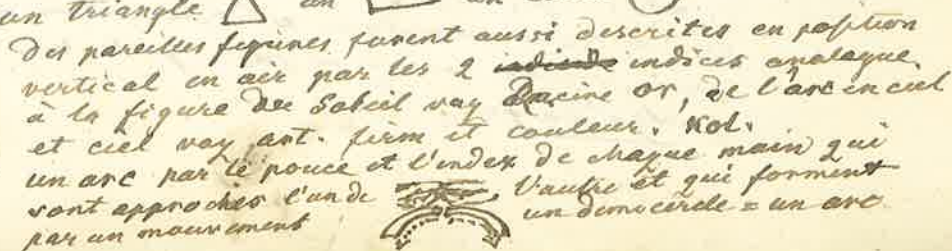 un triangle un un
Des pareilles figures furent aussi descrites en position
vertical en air par les 2 indices analogue
à la figure du Soleil voy Racine or, de l'arc en ciel
et ciel voy art. firm et couleur. Not.
un arc par le pouce et l'index de chaque main qui
sont approchés l'un de l'autre et qui forment
par un mouvement un demicercle = un arc.